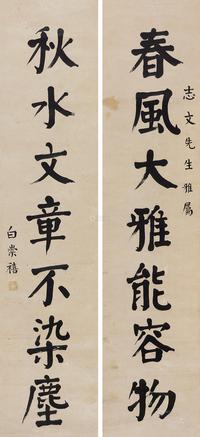 春風大雅能容物
志文先生雅屬
秋水文章不染塵
白崇禧